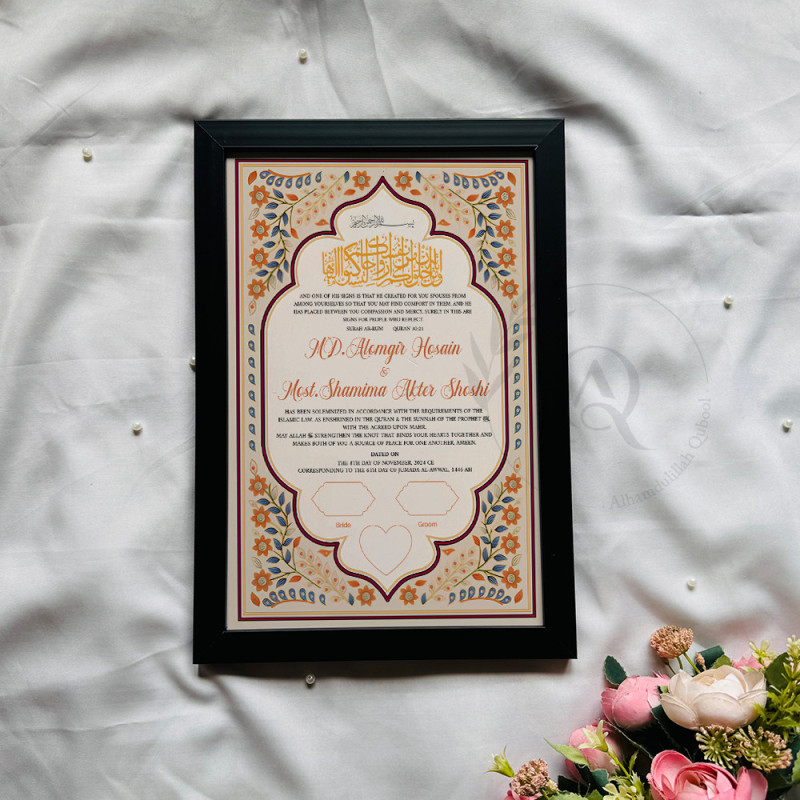 بسم الله الرحمن الرحيم
AND ONE OF HIS SIGNS IS THAT HE CREATED FOR YOU SPOUSES FROM
AMONG YOURSELVES SO THAT YOU MAY FIND COMFORT IN THEM. AND HE
HAS PLACED BETWEEN YOU COMPASSION AND MERCY. SURELY IN THIS ARE
SIGNS FOR PEOPLE WHO REFLECT.
SURAH AR-RUM QURAN 30:21
MD. Alomgir Hosain
&
Most. Shamima Akter Shoshi
HAS BEEN SOLEMNIZED IN ACCORDANCE WITH THE REQUIREMENTS OF THE
ISLAMIC LAW, AS ENSHRINED IN THE QURAN & THE SUNNAH OF THE PROPHET ﷺ,
WITH THE AGREED UPON MAHR.
MAY ALLAH ﷻ STRENGTHEN THE KNOT THAT BINDS YOUR HEARTS TOGETHER AND
MAKES BOTH OF YOU A SOURCE OF PEACE FOR ONE ANOTHER, AMEEN.
DATED ON
THE 8TH DAY OF NOVEMBER, 2024 CE
CORRESPONDING TO THE 6TH DAY OF JUMADA AL-AWWAL, 1445 AH
Bride Groom
AQ
Alhamdulillah Qubool